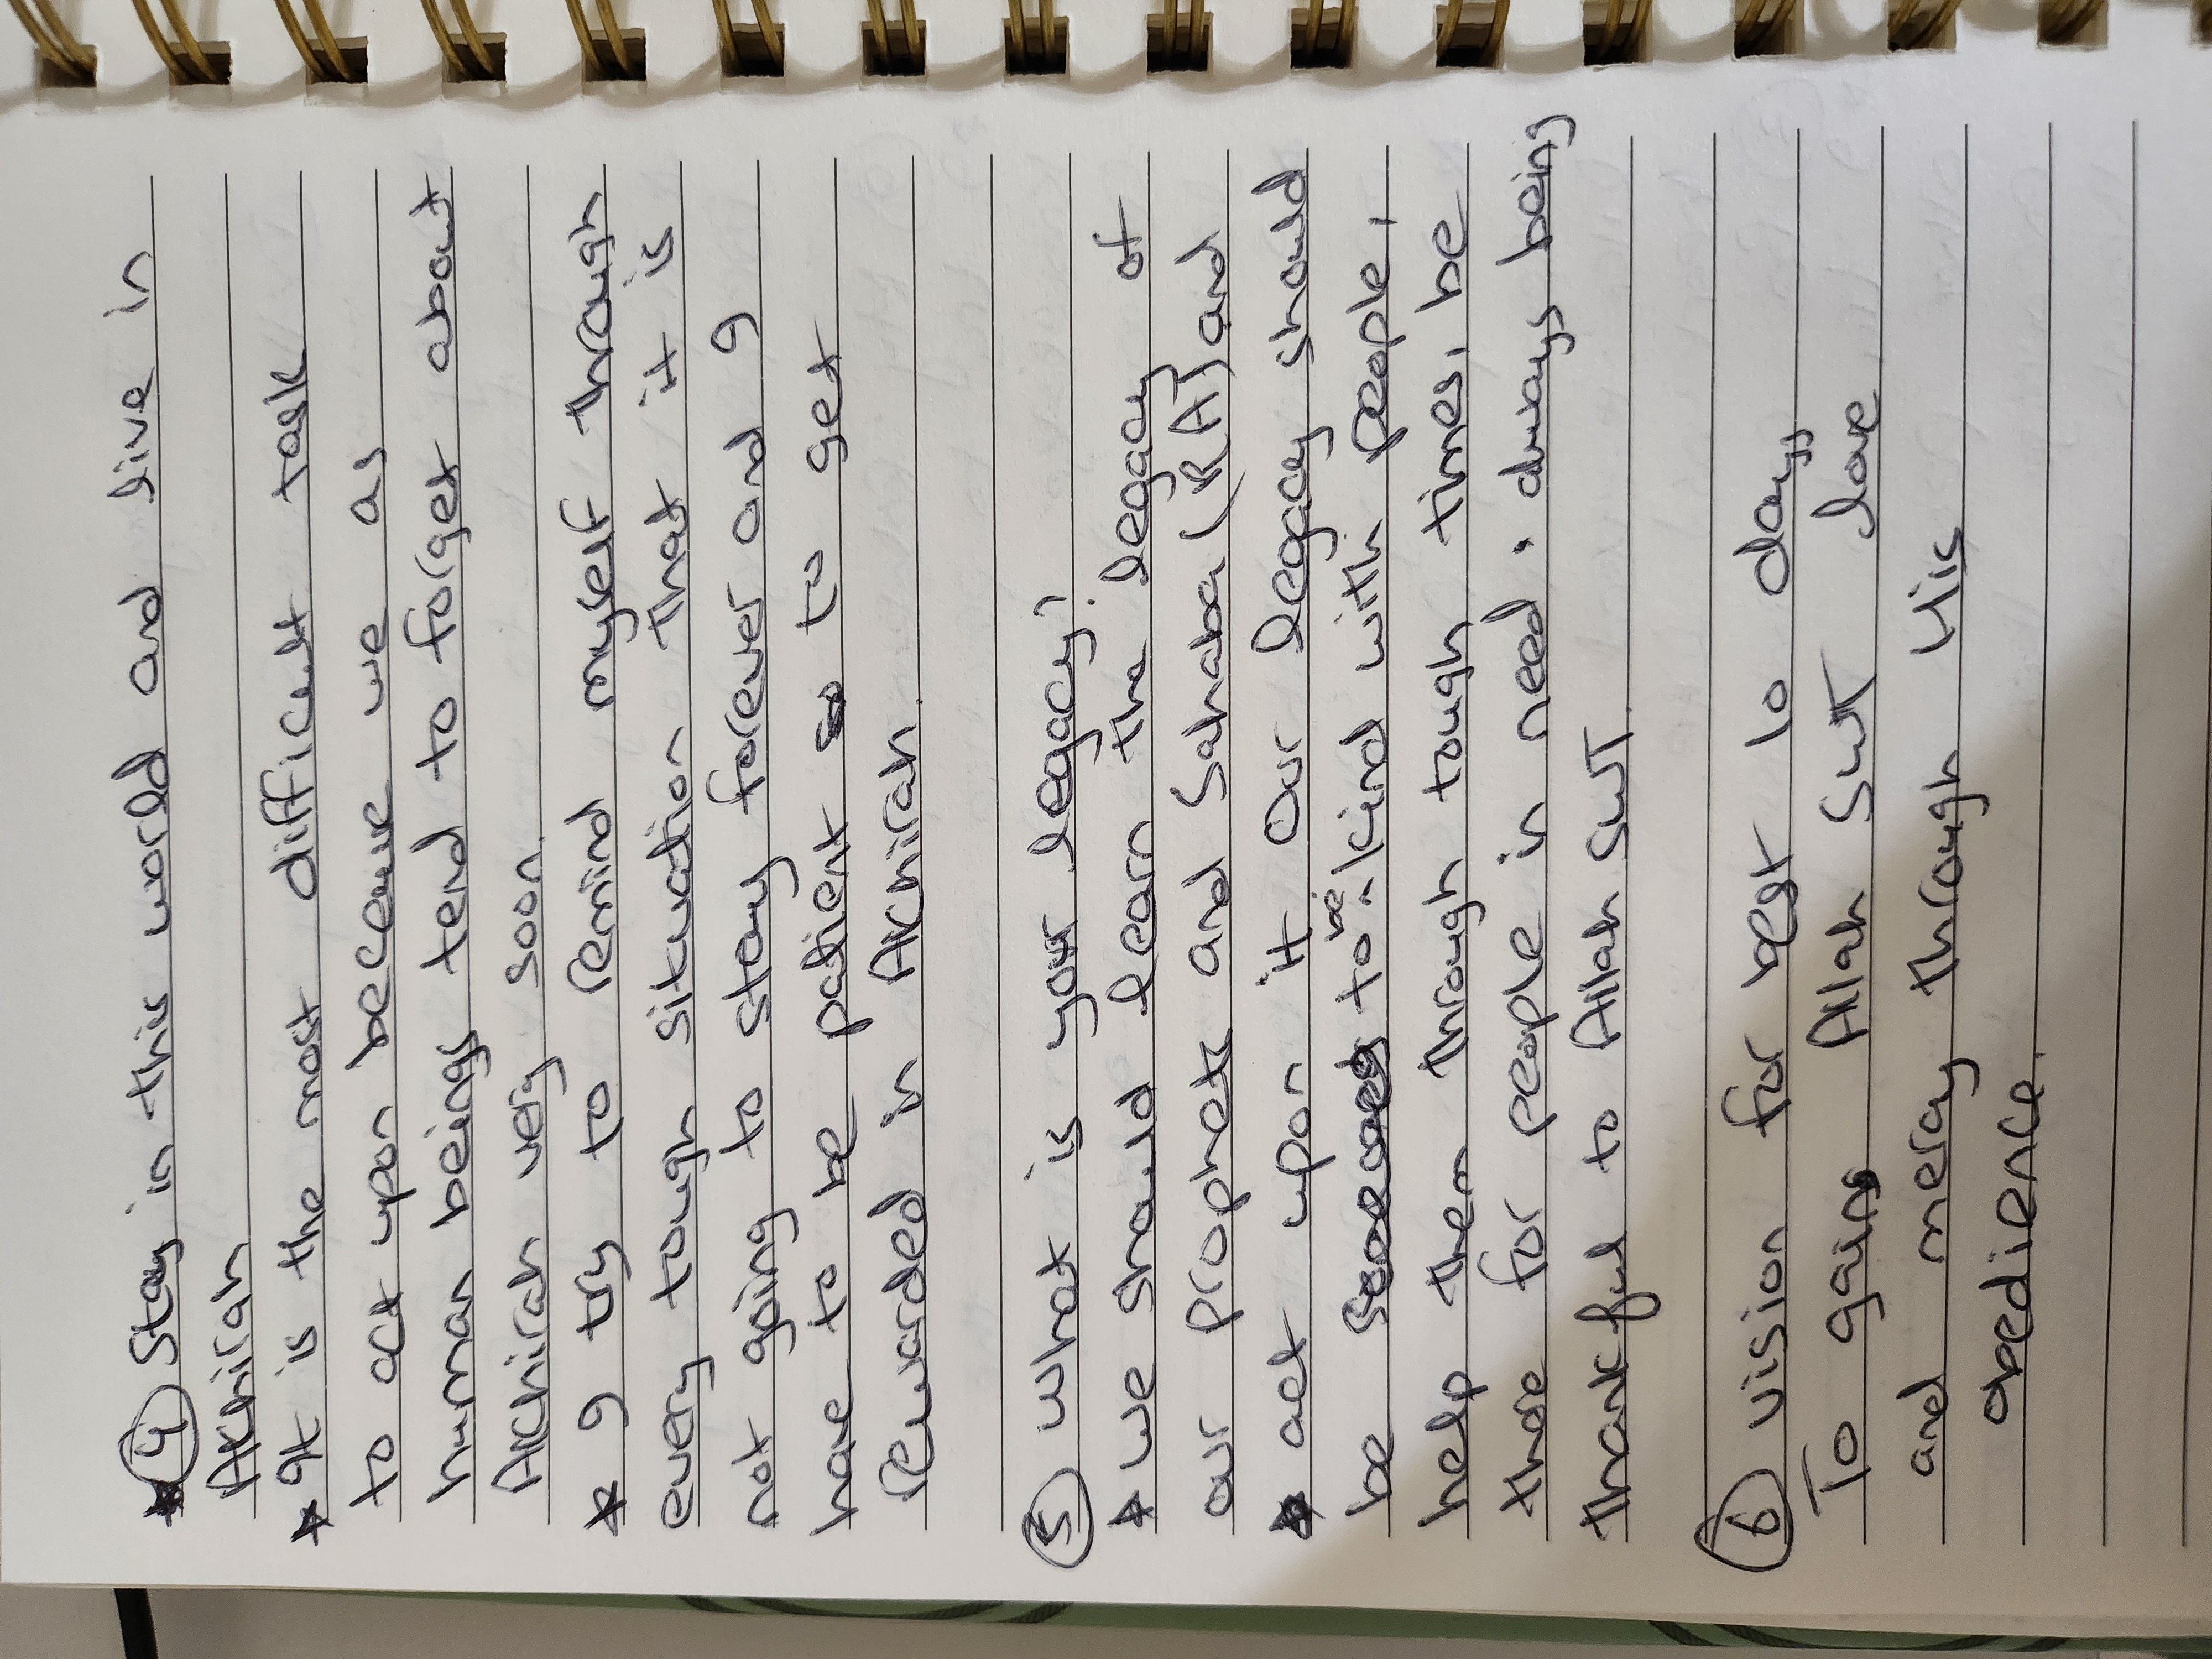 ④ Stay in this world and live in
Akhirah
* It is the most difficult task
to act upon because we as
human beings tend to forget about
Akhirah very soon.
* I try to remind myself through
every tough situation that it is
not going to stay forever and I
have to be patient to get
rewarded in Akhirah.
⑤ What is your legacy?
* We should learn the legacy of
our prophets and Sahaba (RA) and
* act upon it. Our legacy should
be to be kind with people,
help them through tough times, be
there for people in need. always being
thankful to Allah SWT.
⑥ Vision for best 10 days
To gain Allah SWT love
and mercy through His
obedience.